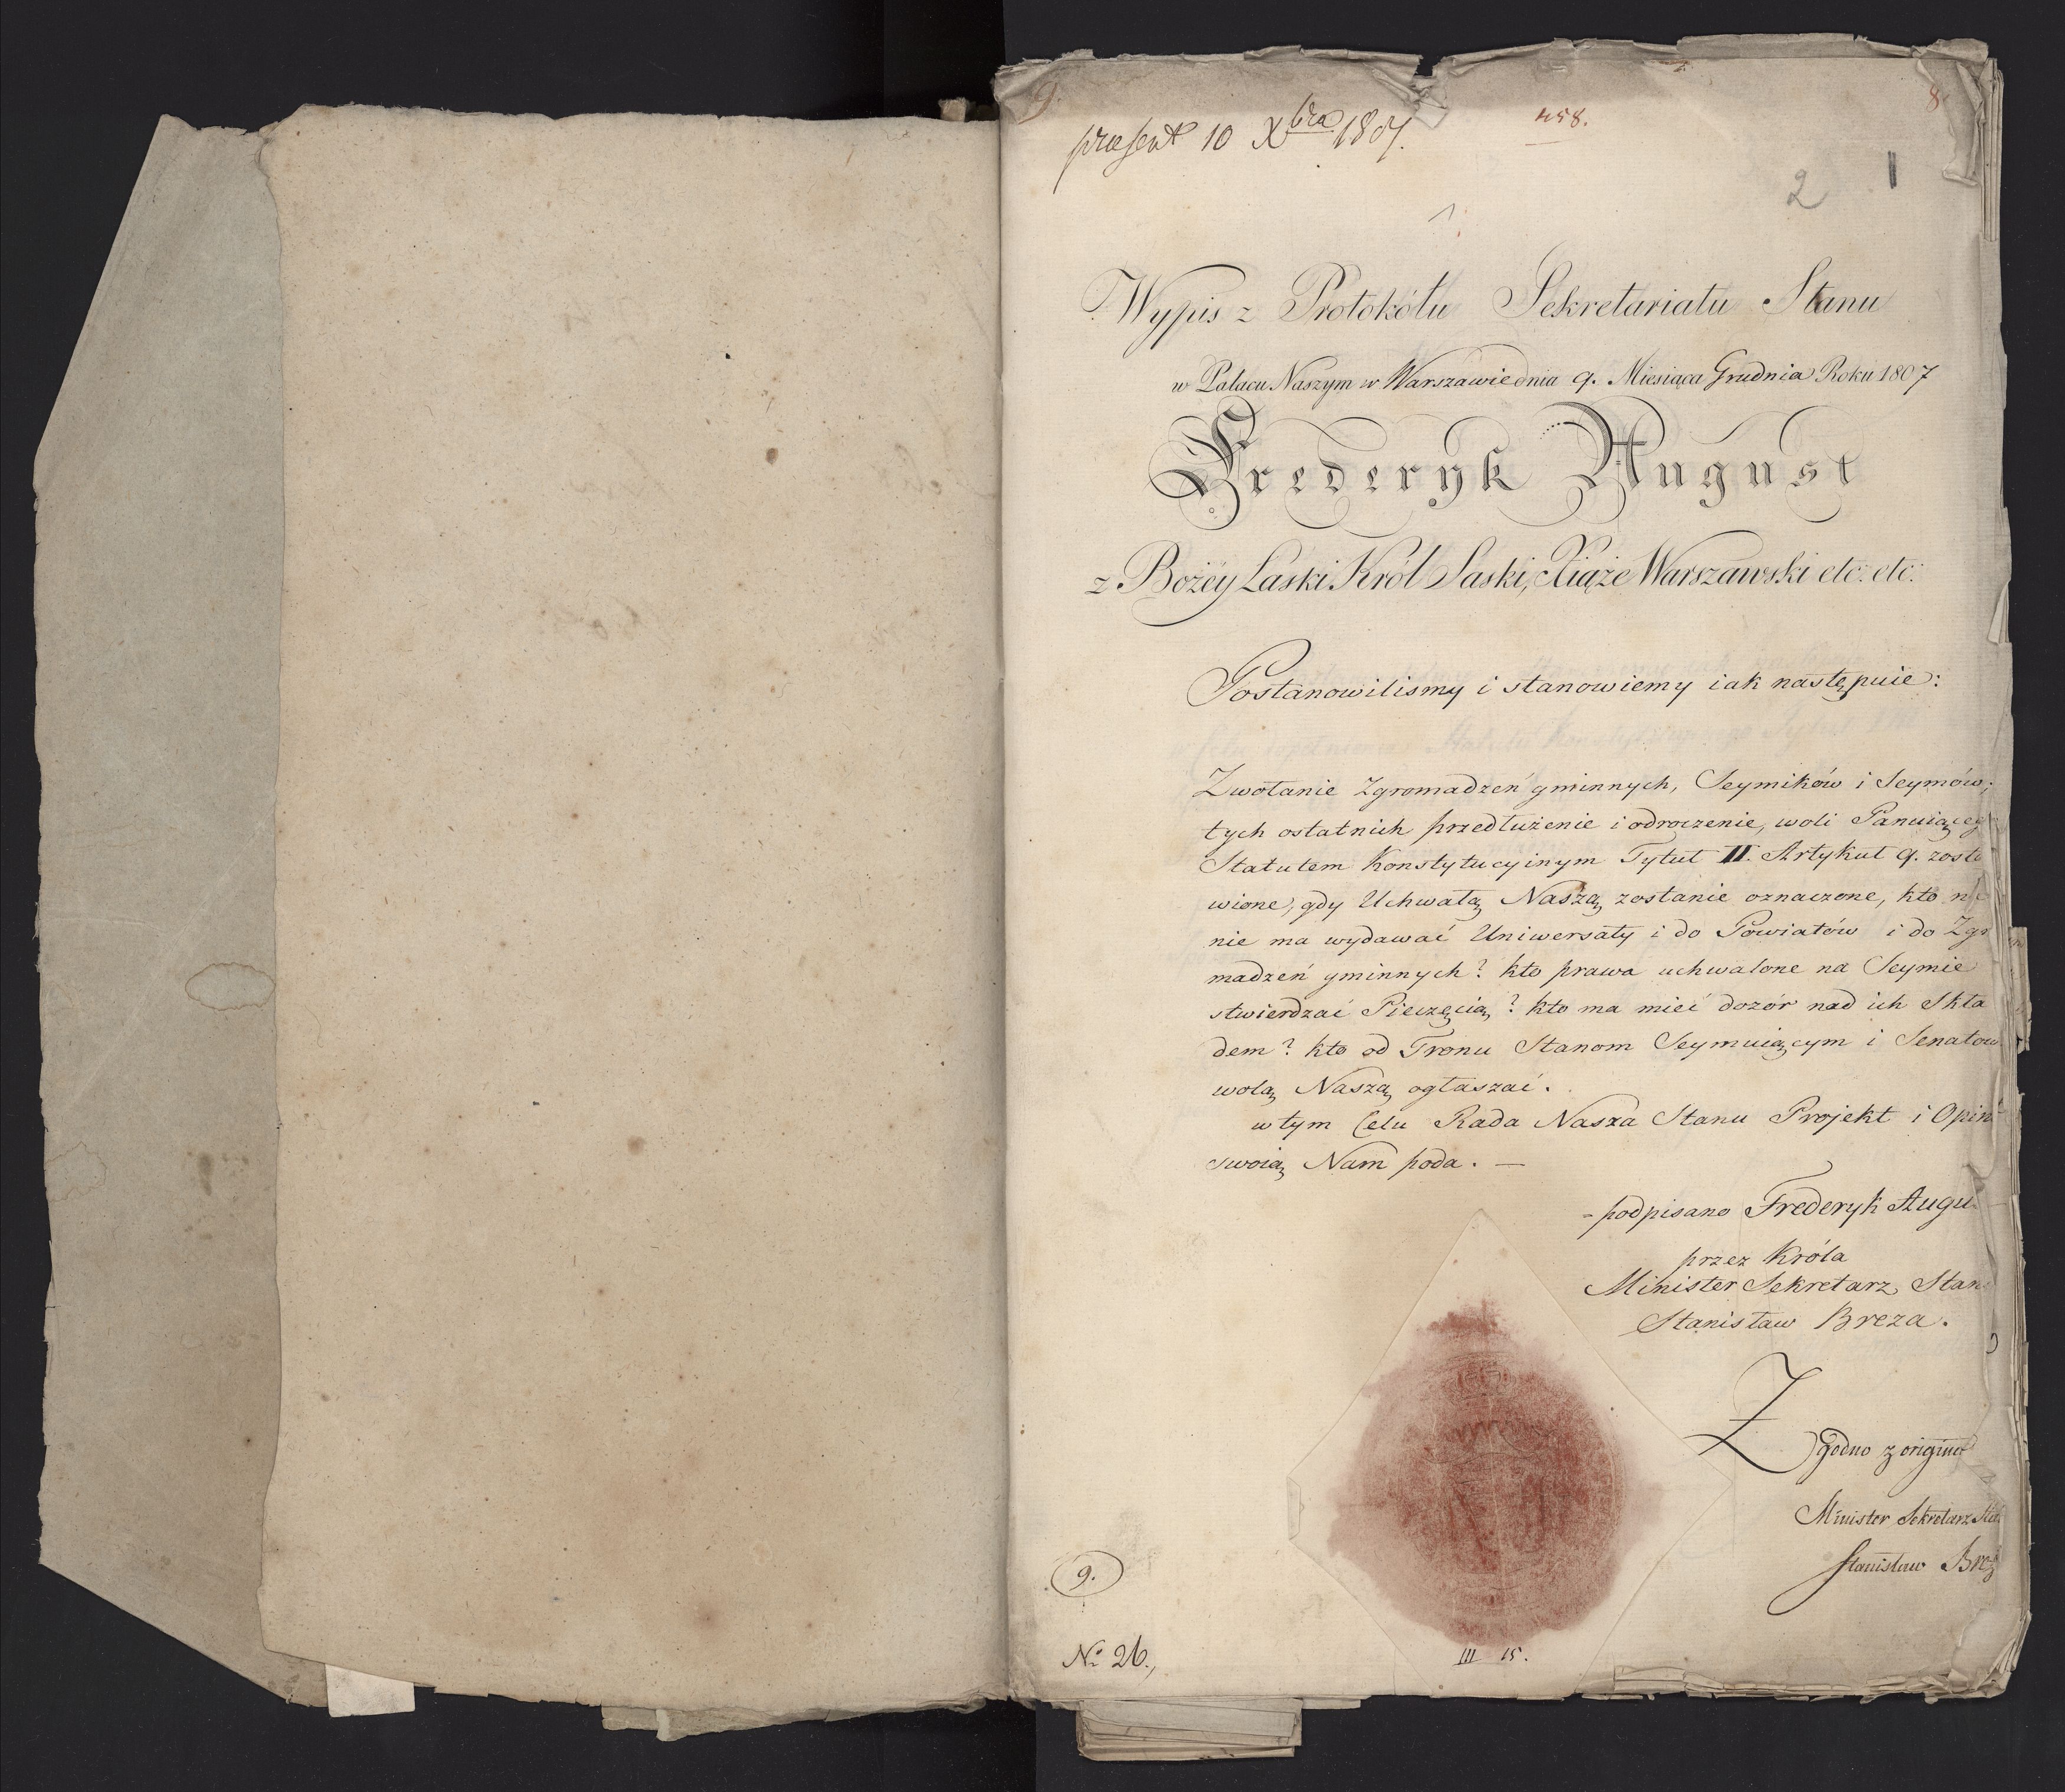 præsent 10 Xbra 1807.
458.
8.
2 1
Wypis z Protokółu Sekretariatu Stanu
w Pałacu Naszym w Warszawie dnia 9. Miesiąca Grudnia Roku 1807
Frederyk August
z Bożey Łaski Król Saski, Xiąże Warszawski etc: etc:
Postanowilismy i stanowiemy iak następuie:
Zwołanie Zgromadzeń gminnych, Seymików i Seymów;
tych ostatnich przedłużenie i odroczenie, woli Panuiąceg
Statutem Konstytucyinym Tytuł II. Artykuł 9. zosta
wione, gdy Uchwałą Naszą zostanie oznaczone, kto
nie ma wydawać Uniwersały i do Powiatów i do Zgro
madzeń gminnych? kto prawa uchwalone na Seymie
stwierdzać Pieczęcią? kto ma mieć dozór nad ich Skła
dem? kto od Tronu Stanom Seymuiącym i Senatow
wolą Naszą ogłaszać.
w tym Celu Rada Nasza Stanu Projekt i Opini
swoią Nam poda. —
- podpisano Frederyk Augu
przez Króla
Minister Sekretarz Stanu
Stanisław Breza.
Zgodno z origina
Minister Sekretarz Sta
Stanisław Brez
9.
No 26.,
III 15.